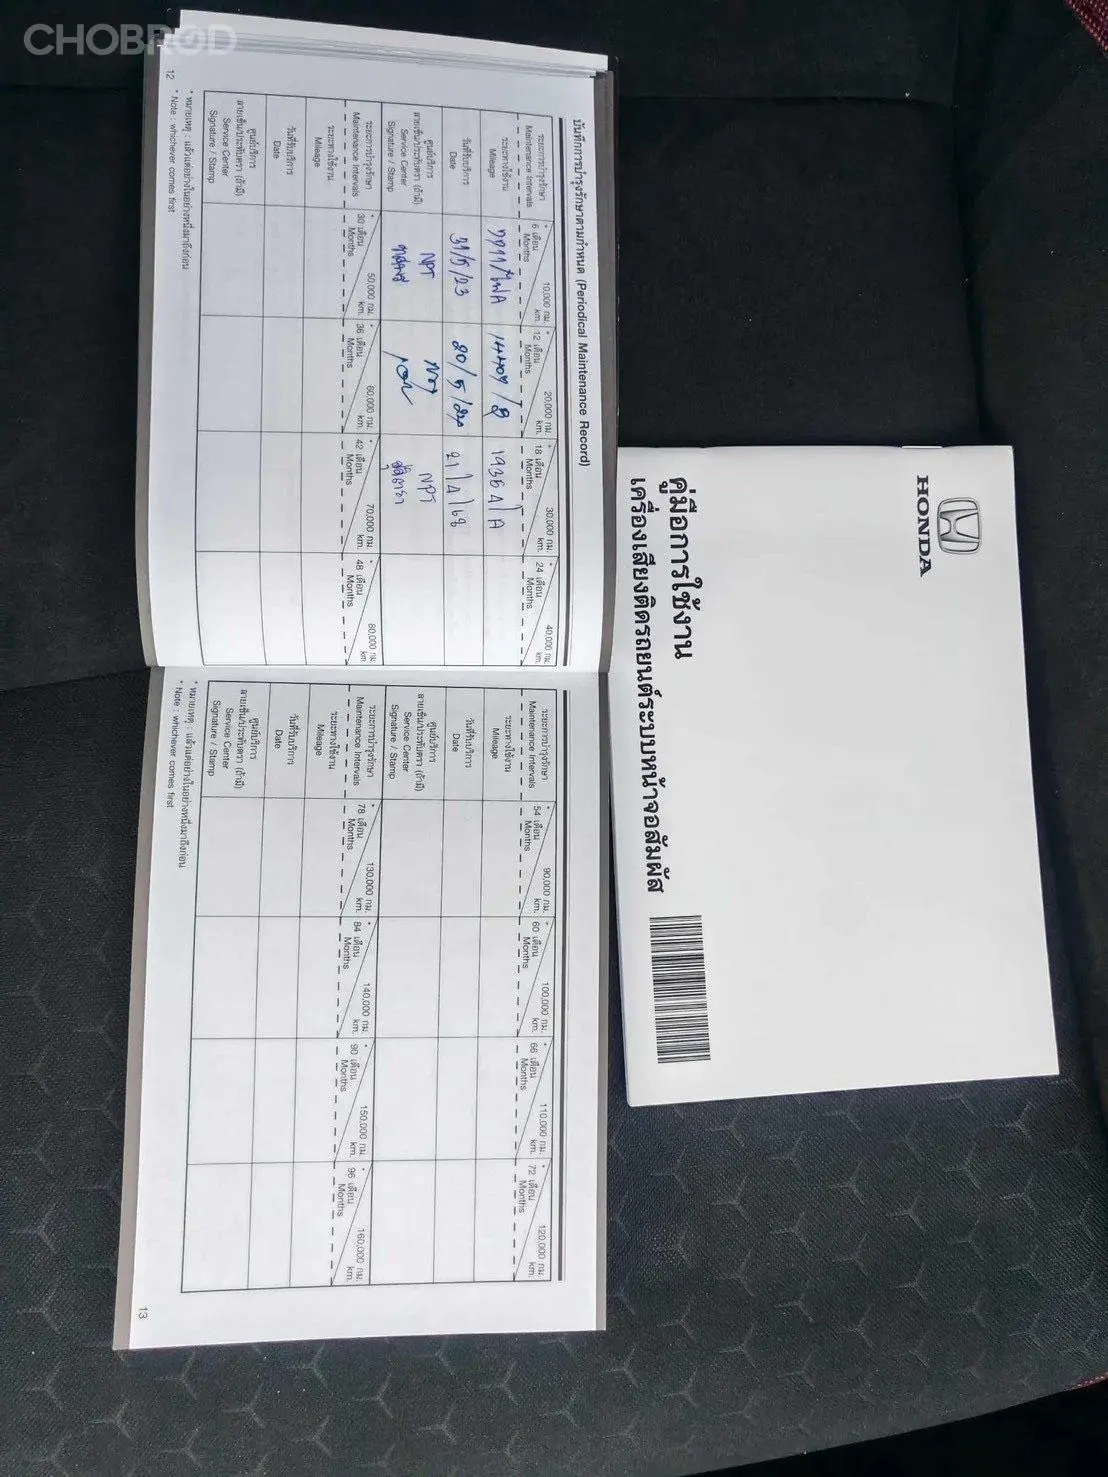 CHOBROD
บันทึกการบำรุงรักษาตามกำหนด (Periodical Maintenance Record)
ระยะการบำรุงรักษา
Maintenance Intervals
* 6 เดือน Months 10,000 กม. km.
* 12 เดือน Months 20,000 กม. km.
* 18 เดือน Months 30,000 กม. km.
* 24 เดือน Months 40,000 กม. km.
ระยะทางใช้งาน
Mileage
วันที่รับบริการ
Date
31/5/23
20/5/24
21/4/68
ศูนย์บริการ
Service Center
ลายเซ็น/ประทับตรา (ถ้ามี)
Signature / Stamp
NPT
NPT
ระยะการบำรุงรักษา
Maintenance Intervals
* 30 เดือน Months 50,000 กม. km.
* 36 เดือน Months 60,000 กม. km.
* 42 เดือน Months 70,000 กม. km.
* 48 เดือน Months 80,000 กม. km.
ระยะทางใช้งาน
Mileage
วันที่รับบริการ
Date
ศูนย์บริการ
Service Center
ลายเซ็น/ประทับตรา (ถ้ามี)
Signature / Stamp
* หมายเหตุ : แล้วแต่อย่างใดอย่างหนึ่งมาถึงก่อน
* Note : whichever comes first
12
ระยะการบำรุงรักษา
Maintenance Intervals
* 54 เดือน Months 90,000 กม. km.
* 60 เดือน Months 100,000 กม. km.
* 66 เดือน Months 110,000 กม. km.
* 72 เดือน Months 120,000 กม. km.
ระยะทางใช้งาน
Mileage
วันที่รับบริการ
Date
ศูนย์บริการ
Service Center
ลายเซ็น/ประทับตรา (ถ้ามี)
Signature / Stamp
ระยะการบำรุงรักษา
Maintenance Intervals
* 78 เดือน Months 130,000 กม. km.
* 84 เดือน Months 140,000 กม. km.
* 90 เดือน Months 150,000 กม. km.
* 96 เดือน Months 160,000 กม. km.
ระยะทางใช้งาน
Mileage
วันที่รับบริการ
Date
ศูนย์บริการ
Service Center
ลายเซ็น/ประทับตรา (ถ้ามี)
Signature / Stamp
* หมายเหตุ : แล้วแต่อย่างใดอย่างหนึ่งมาถึงก่อน
* Note : whichever comes first
13
HONDA
คู่มือการใช้งาน
เครื่องเสียงติดรถยนต์ระบบหน้าจอสัมผัส